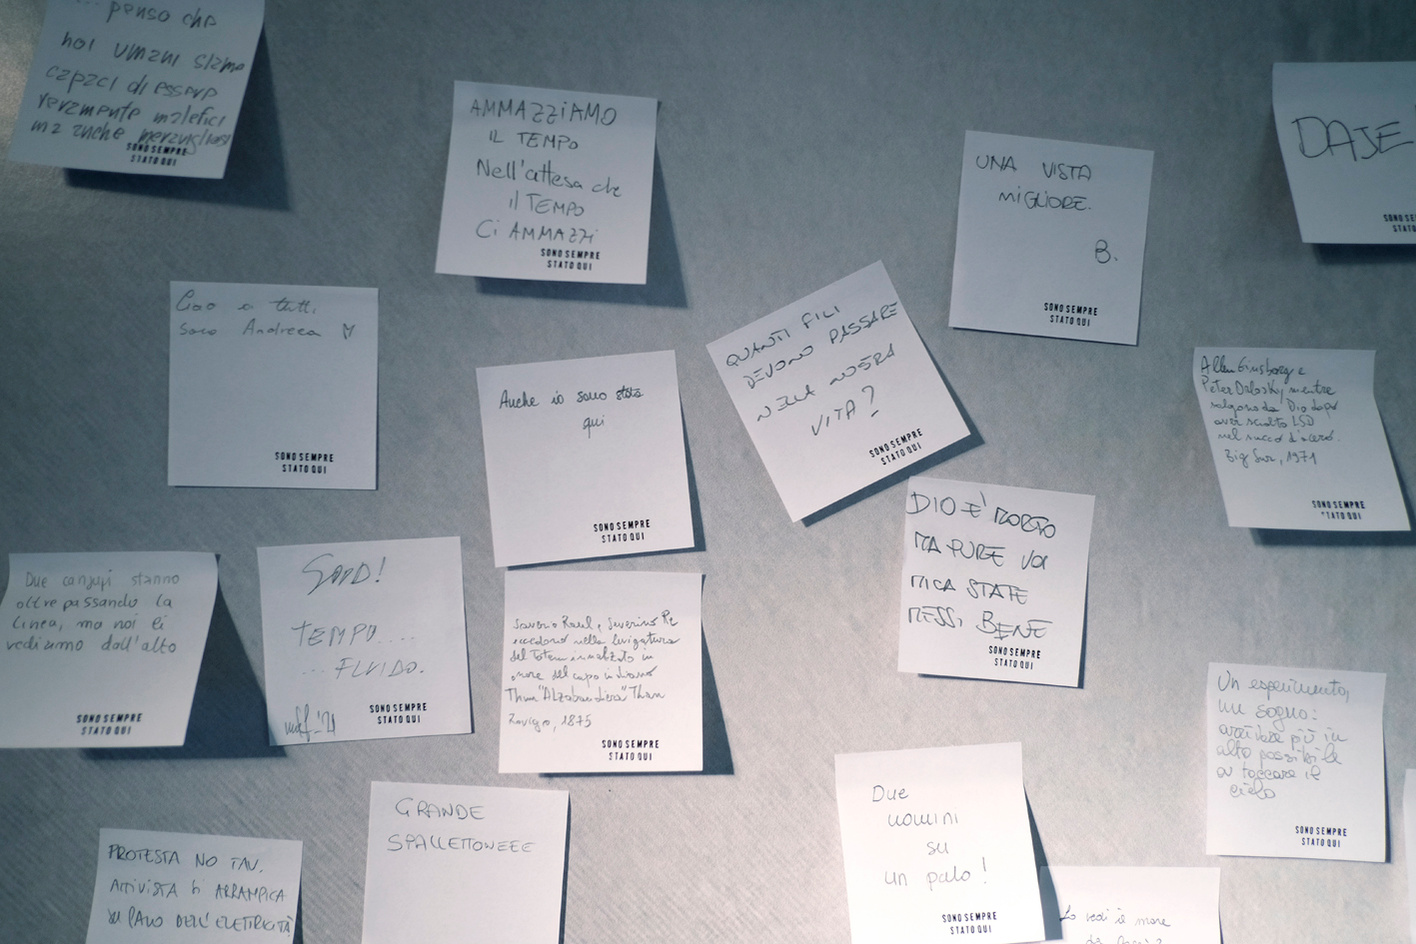 ... penso che
noi umani siamo
capaci di essere
veramente malefici
ma anche meravigliosi
SONO SEMPRE
STATO QUI
AMMAZZIAMO
IL TEMPO
Nell'attesa che
il TEMPO
Ci AMMAZZi
SONO SEMPRE
STATO QUI
UNA VISTA
MIGLIORE.
B.
SONO SEMPRE
STATO QUI
DAJE
SONO SE
STATO
Ciao a tutti,
sono Andreea
SONO SEMPRE
STATO QUI
Anche io sono stata
qui
SONO SEMPRE
STATO QUI
QUANTI FILI
DEVONO PASSARE
NELLA NOSTRA
VITA?
SONO SEMPRE
STATO QUI
Allen Ginsberg e
Peter Orlosky, mentre
salgono da Dio dopo
aver sciolto LSD
nel succo d'acero.
Big Sur, 1971
SONO SEMPRE
STATO QUI
DIO E' MORTO
MA PURE VOI
MICA STATE
MESSI BENE
SONO SEMPRE
STATO QUI
Due canjupi stanno
oltrepassando la
linea, ma noi li
vediamo dall'alto
SONO SEMPRE
STATO QUI
TEMPO....
...FLUIDO.
SONO SEMPRE
STATO QUI
Saverio Raul e Severino Re
nella levigatura
del Totem innalzato in
onore del capo indiano
Thum "Alzabandiera" Thum
Rovigo, 1875
SONO SEMPRE
STATO QUI
Un esperimento,
un sogno:
arrivare più in
alto possibile
a toccare il
cielo
SONO SEMPRE
STATO QUI
GRANDE
SPALLETTONEEE
PROTESTA NO TAV.
ATTIVISTA SI ARRAMPICA
SU PALO DELL'ELETTRICITÀ
Due
uomini
su
un palo!
SONO SEMPRE
STATO QUI
Lo vedi il mare
da